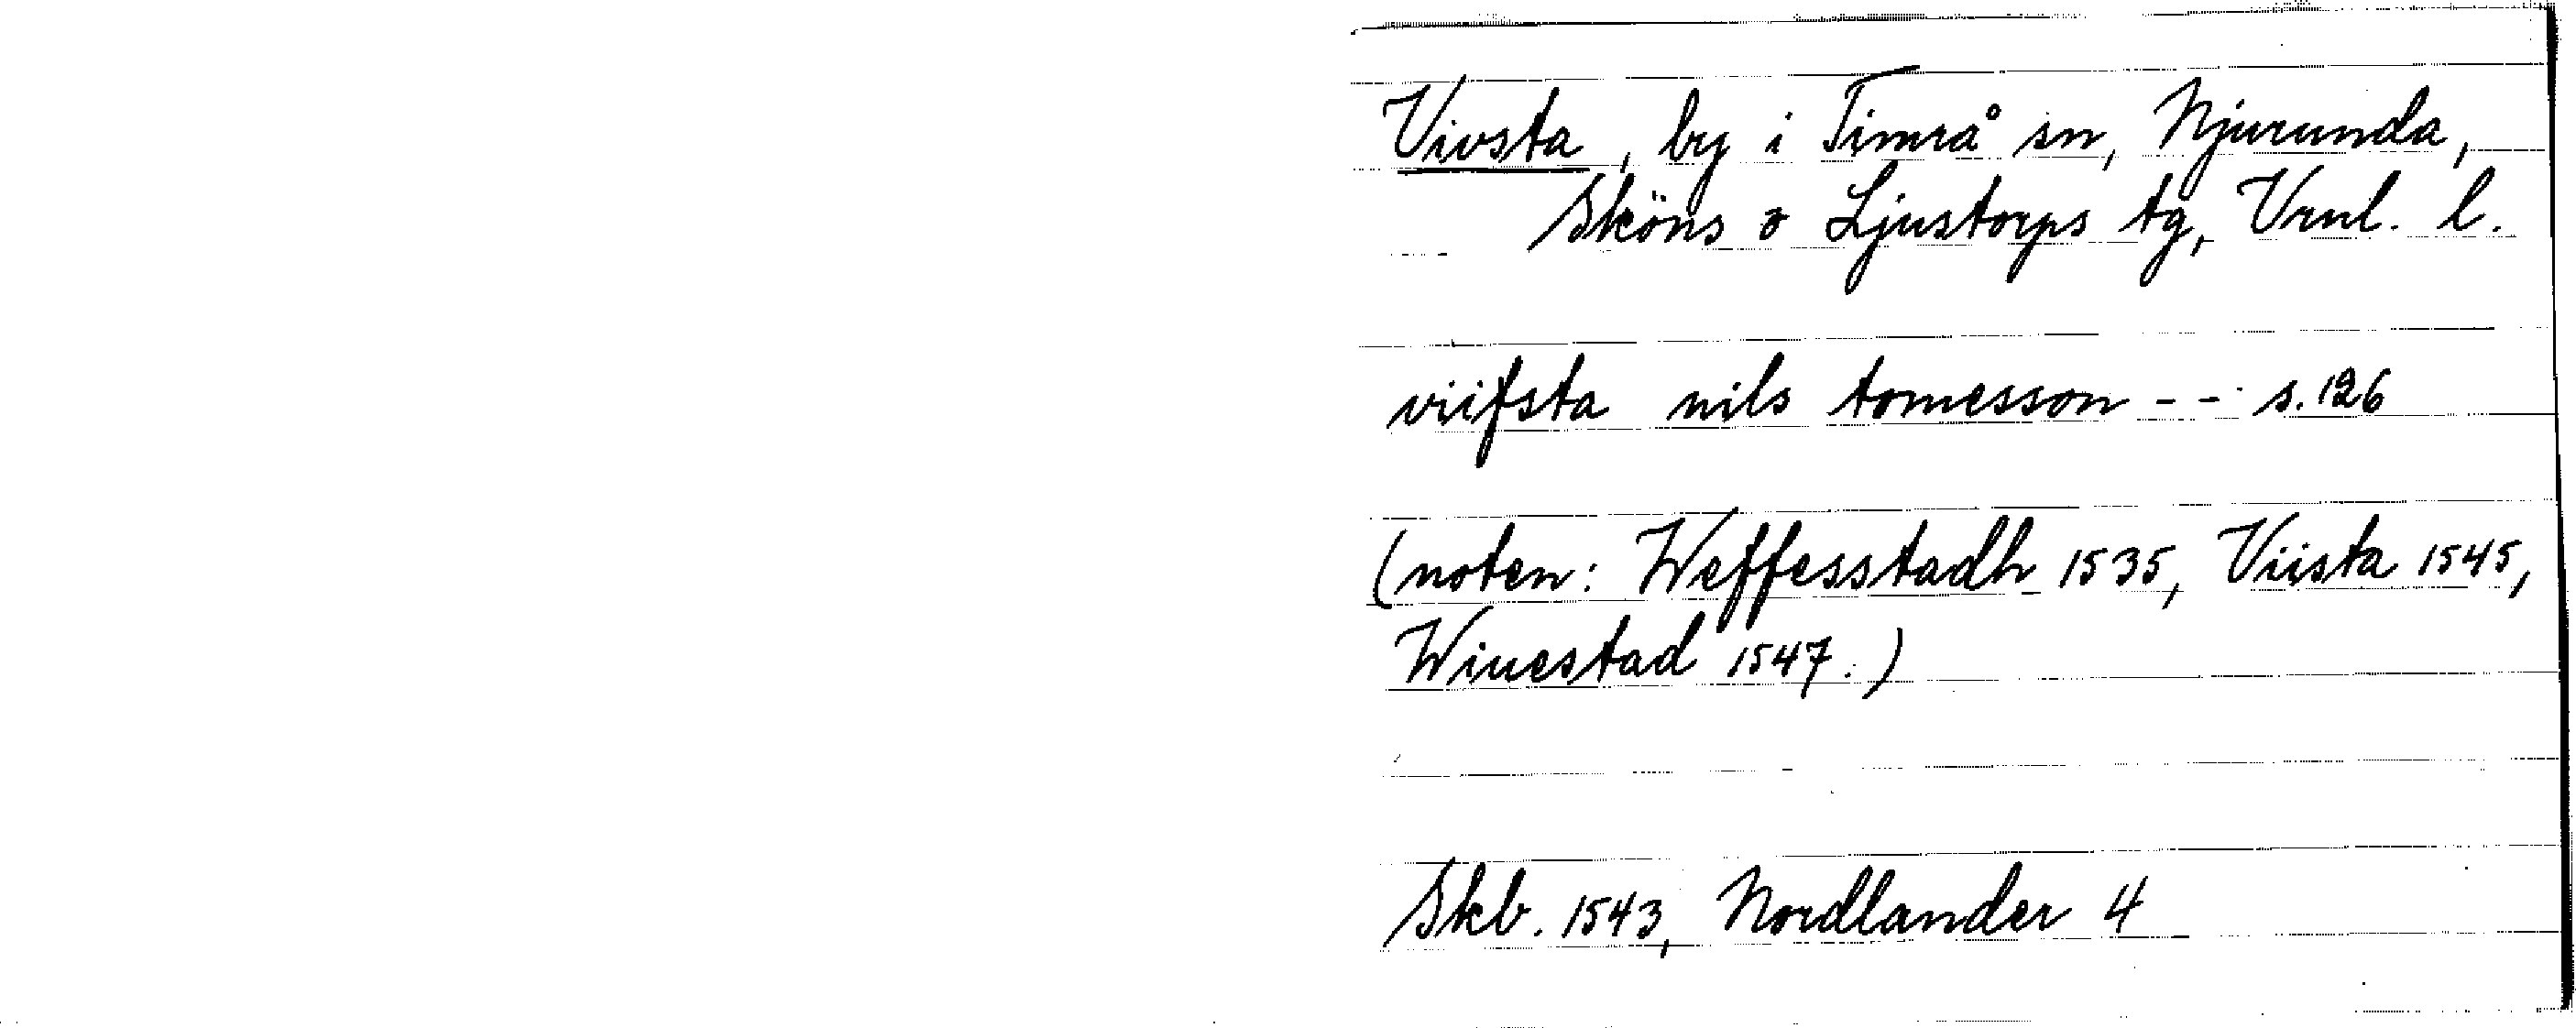 Vivsta, by i Timrå sn, Njurunda,
Sköns o Ljustorps tg, Vrnl. l.
viifsta nils tomesson - - s. 126
(noten: Weffesstadh 1535, Viista 1545,
Wiuestad 1547.)
Skb. 1543, Nordlander 4